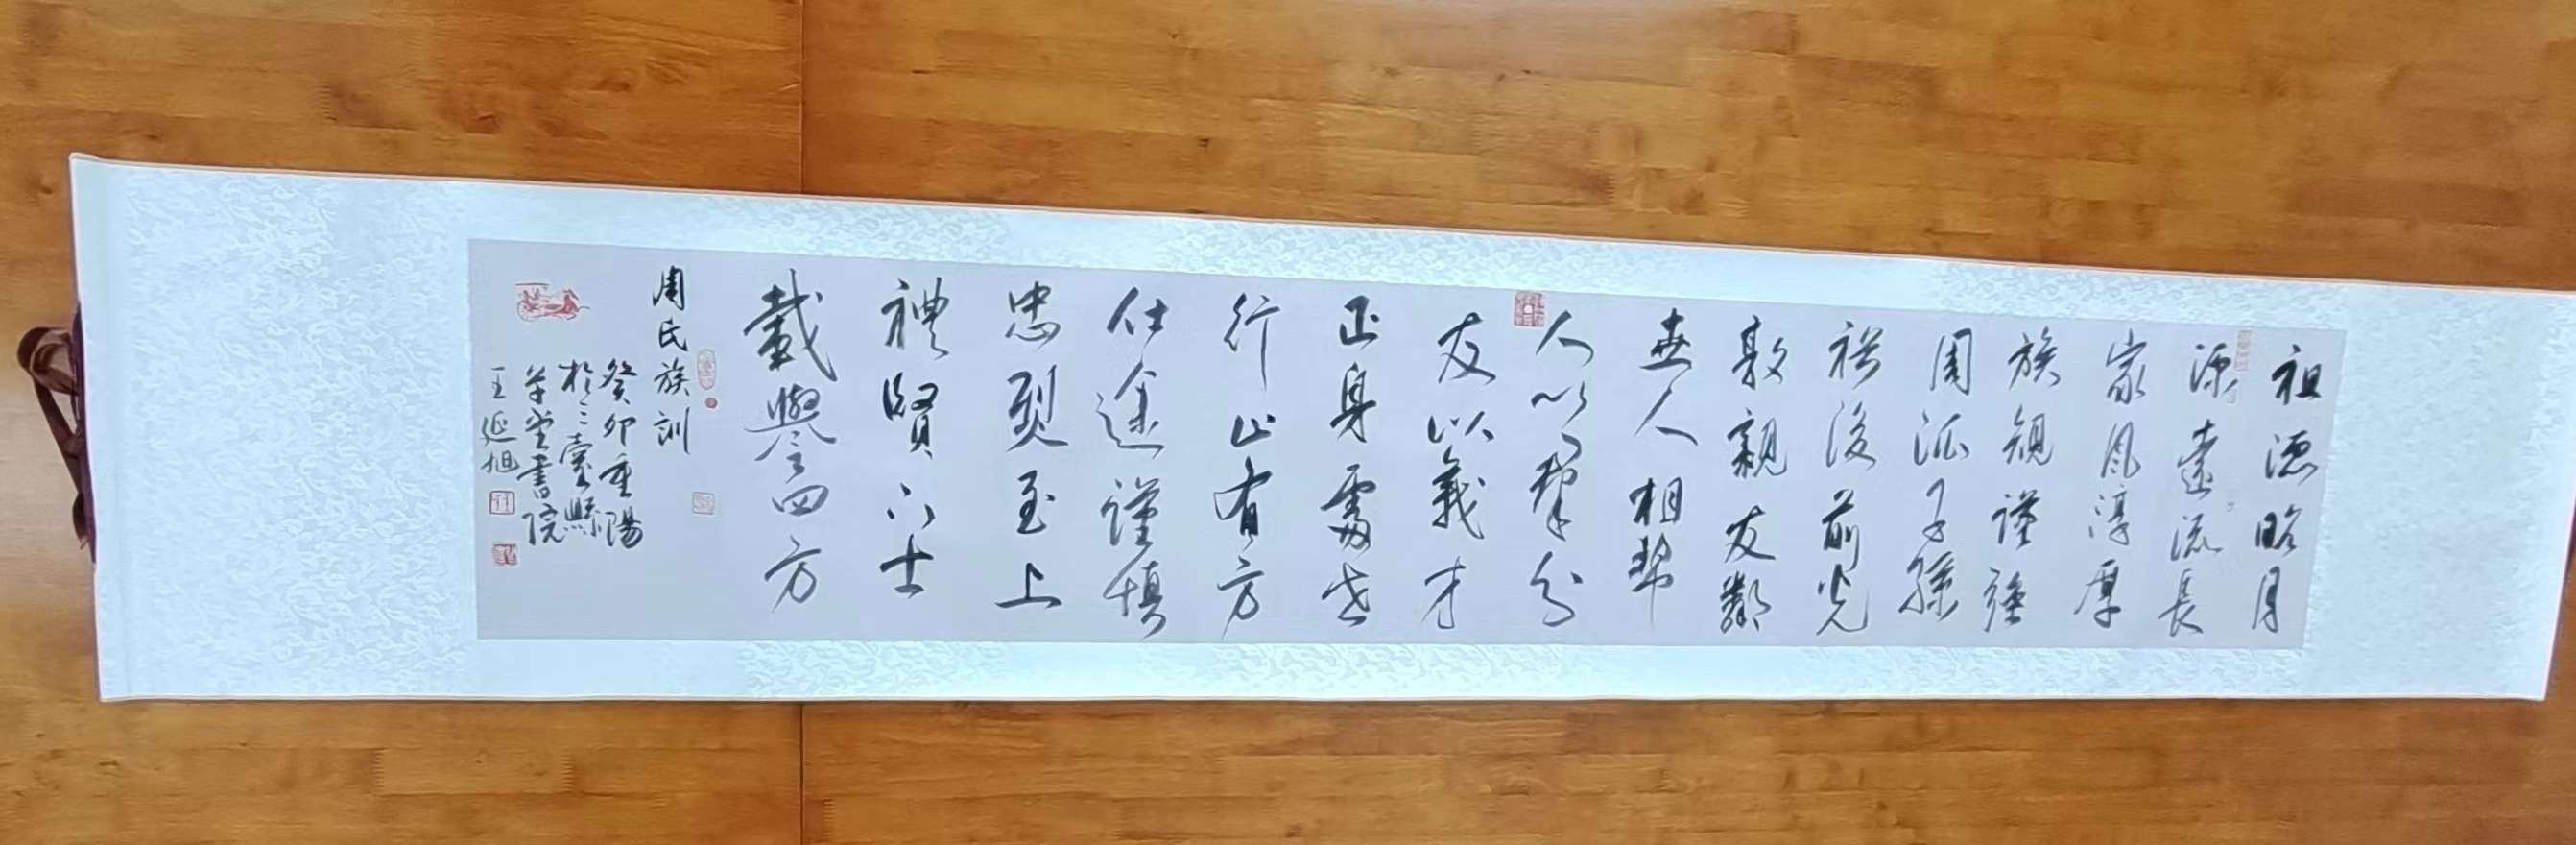 祖德昭月
源遠流長
家風淳厚
族規謹強
周派子孫
裕後前光
敦親友鄰
世人相幫
人以群分
友以義才
正身處世
行止有方
仕途謹慎
忠烈至上
禮賢下士
載譽四方
周氏族訓
癸卯重陽
於三臺縣
草堂書院
王延旭